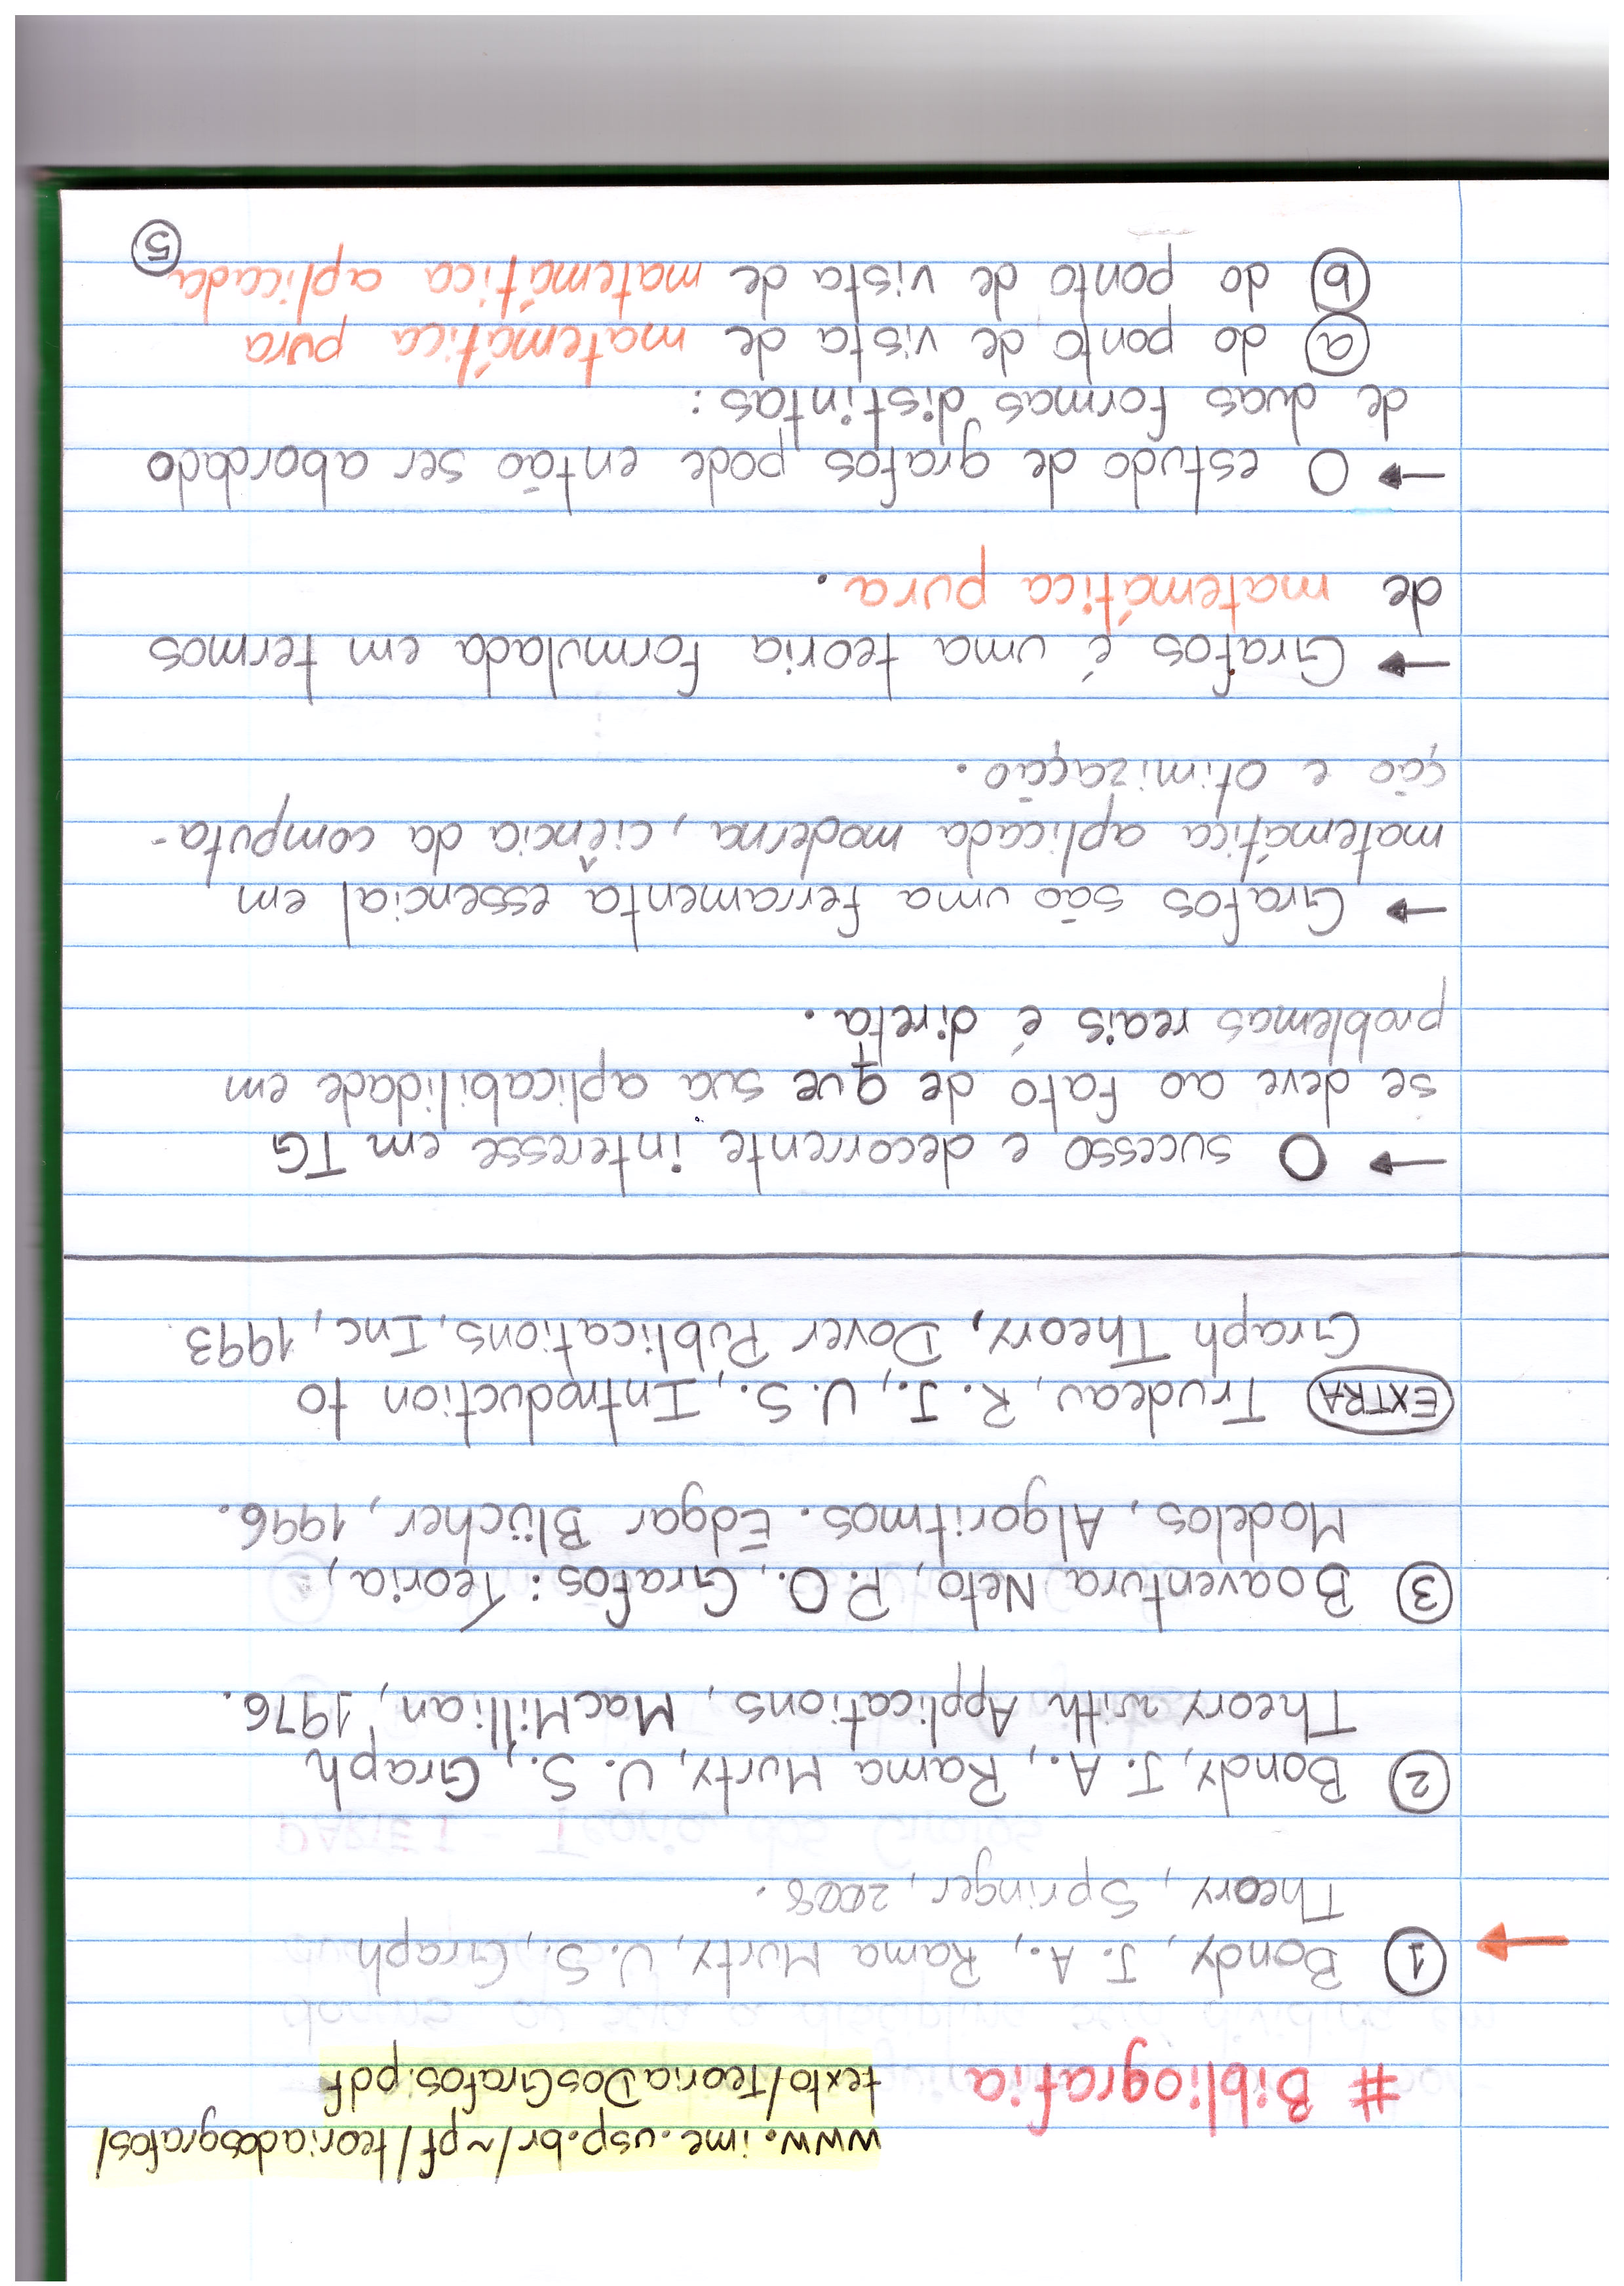 www.ime.usp.br/~pf/teoriadosgrafos/
texto/TeoriaDosGrafos.pdf
# Bibliografia
1 Bondy, J. A., Rama Murty, U. S., Graph
Theory, Springer, 2008.
2 Bondy, J. A., Rama Murty, U. S., Graph
Theory with Applications, MacMillian, 1976.
3 Boaventura Neto, P. O., Grafos: Teoria,
Modelos, Algoritmos. Edgar Blücher, 1996.
EXTRA Trudeau, R. J., U. S., Introduction to
Graph Theory, Dover Publications, Inc, 1993.
→ O sucesso e decorrente interesse em TG
se deve ao fato de que sua aplicabilidade em
problemas reais é direta.
→ Grafos são uma ferramenta essencial em
matemática aplicada moderna, ciência da computa-
ção e otimização.
→ Grafos é uma teoria formulada em termos
de matemática pura.
→ O estudo de grafos pode então ser abordado
de duas formas distintas:
a do ponto de vista de matemática pura
b do ponto de vista de matemática aplicada
5